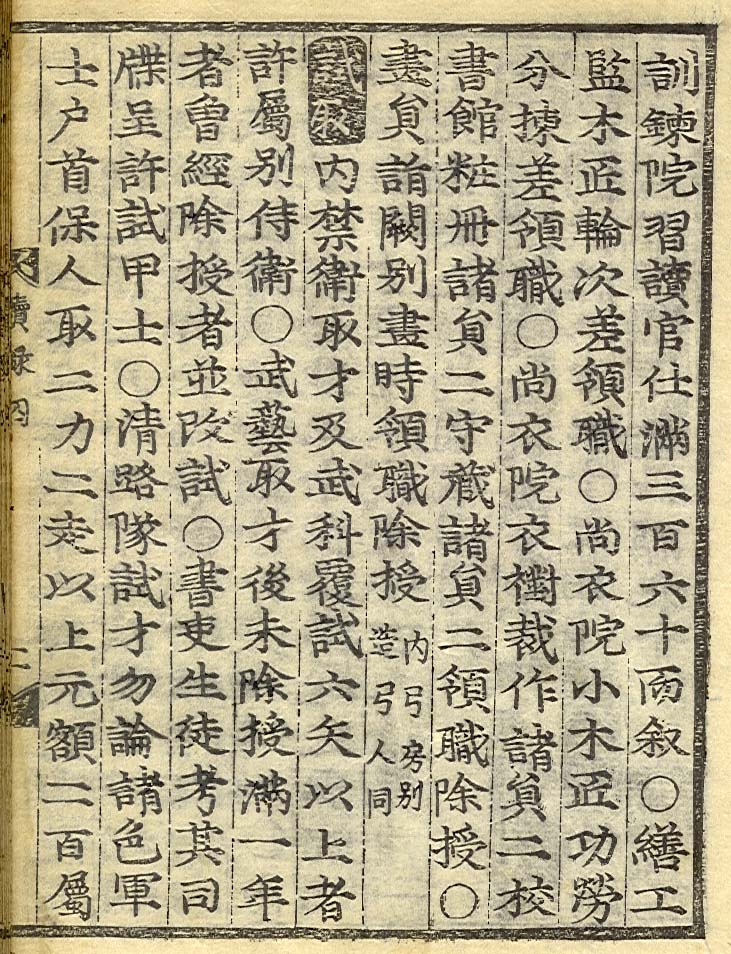 訓鍊院習讀官仕滿三百六十而叙○繕工
監木匠輪次差領職○尚衣院小木匠功勞
分揀差領職○尚衣院衣襨裁作諸負二校
書館粧冊諸負二守藏諸負二領職除授○
畫負詣闕別畫時領職除授内弓房別造弓人同
試取内禁衛取才及武科覆試六矢以上者
許屬別侍衛○武藝取才後未除授滿一年
者曾經除授者並改試○書吏生徒考其司
牒呈許試甲士○清路隊試才勿論諸色軍
士户首保人取二力二走以上元額二百屬
續錄
二